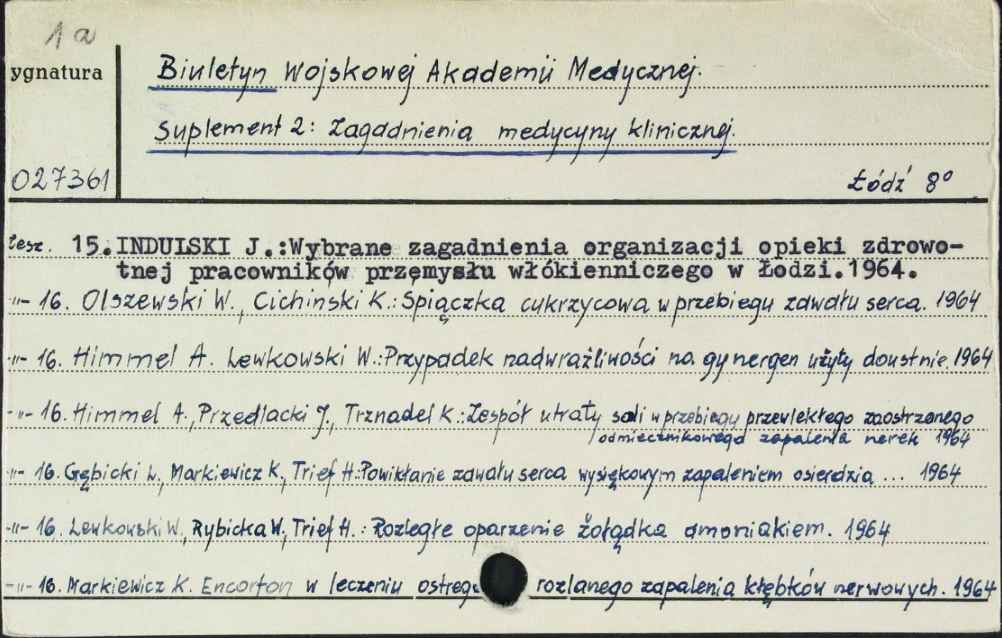 1a
ygnatura
Biuletyn Wojskowej Akademii Medycznej.
Suplement 2: Zagadnienia medycyny klinicznej.
027361
Łódź 8°
Zesz. 15. INDULSKI J.:Wybrane zagadnienia organizacji opieki zdrowo-
tnej pracowników przemysłu włókienniczego w Łodzi.1964.
-"- 16. Olszewski W., Cichiński K.: Śpiączka cukrzycowa w przebiegu zawału serca. 1964
-"- 16. Himmel A. Lewkowski W.:Przypadek nadwrażliwości na gynergen użyty doustnie.1964
-"- 16. Himmel A., Przedlacki J., Trznadel K.:Zespół utraty soli w przebiegu przewlekłego zaostrzonego
odmiecznikowego zapalenia nerek 1964
-"- 16. Gębicki L., Markiewicz K., Trief H.:Powikłanie zawału serca wysiękowym zapaleniem osierdzia ... 1964
-"- 16. Lewkowski W., Rybicka W., Trief H.: Rozległe oparzenie żołądka amoniakiem. 1964
-"- 16. Markiewicz K. Encorton w leczeniu ostrego rozlanego zapalenia kłębków nerwowych. 1964